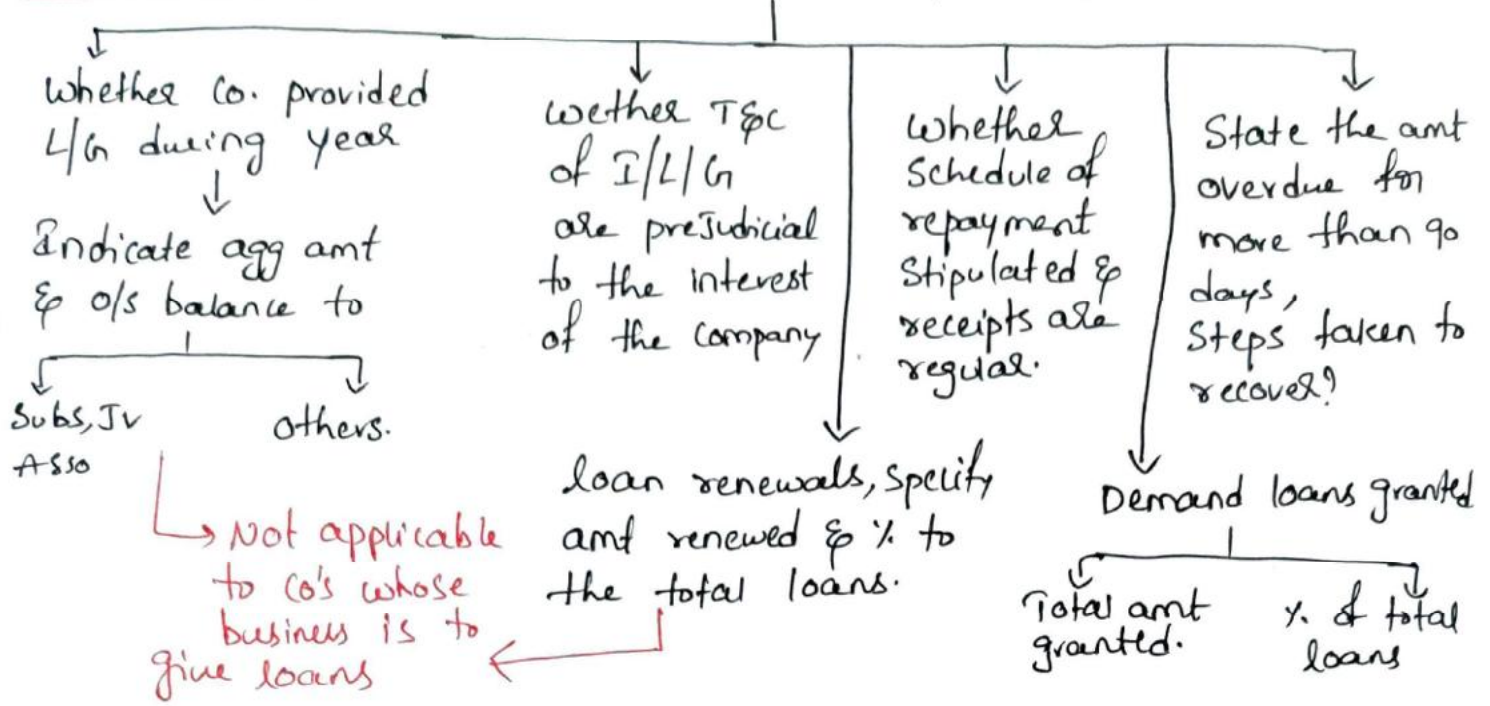 Whether Co. provided
L/G during year
Indicate agg amt
& o/s balance to
Subs, JV
Asso
others.
Not applicable
to Co's whose
business is to
give loans
wether T&C
of I/L/G
are prejudicial
to the interest
of the company
loan renewals, specify
amt renewed & % to
the total loans.
Whether
Schedule of
repayment
Stipulated &
receipts are
regular.
State the amt
overdue for
more than 90
days,
Steps taken to
recover?
Demand loans granted
Total amt
granted.
% of total
loans